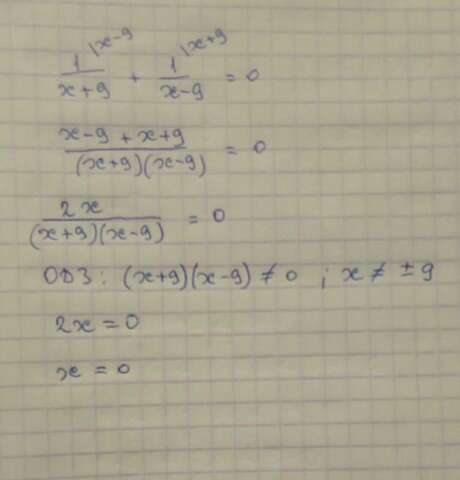 1/(x+9) |x-9 + 1/(x-9) |x+9 = 0
(x-9+x+9)/((x+9)(x-9)) = 0
2x/((x+9)(x-9)) = 0
ОДЗ: (x+9)(x-9) ≠ 0 ; x ≠ ±9
2x = 0
x = 0